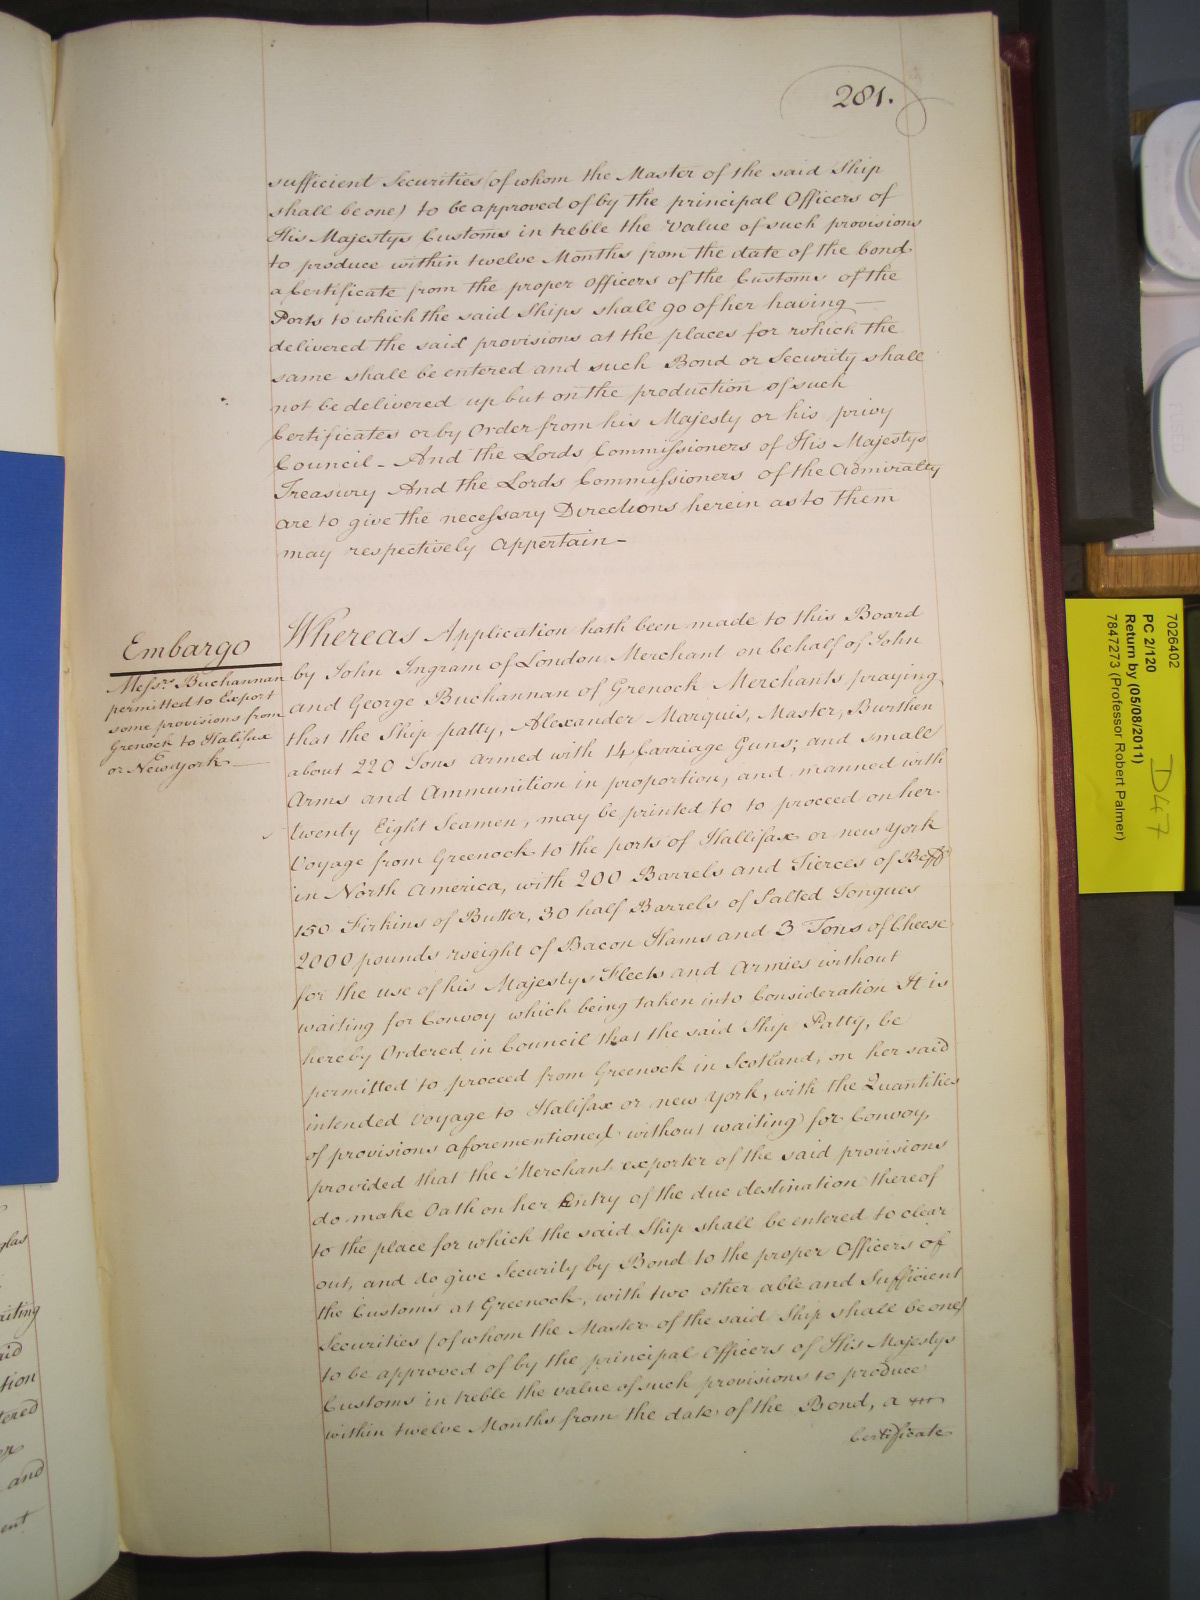 281.
sufficient Securities (of whom the Master of the said Ship
shall be one) to be approved of by the principal Officers of
His Majestys Customs in treble the value of such provisions
to produce within twelve Months from the date of the bond
a Certificate from the proper Officers of the Customs of the
Ports to which the said Ships shall go of her having —
delivered the said provisions at the places for which the
same shall be entered and such Bond or Security shall
not be delivered up but on the production of such
Certificates or by Order from his Majesty or his privy
Council - And the Lords Commissioners of His Majestys
Treasury And the Lords Commissioners of the Admiralty
are to give the necessary Directions herein as to them
may respectively appertain —
Embargo
Messrs. Buchannan
permitted to Export
some provisions from
Grenock to Halifax
or Newyork —
Whereas Application hath been made to this Board
by John Ingram of London Merchant on behalf of John
and George Buchannan of Grenock Merchants praying
that the Ship patty, Alexander Marquis, Master, Burthen
about 220 Tons armed with 14 Carriage Guns; and small
Arms and Ammunition in proportion, and manned with
twenty Eight Seamen, may be printed to to proceed on her
Voyage from Greenock to the ports of Hallifax or new york
in North America, with 200 Barrels and Tierces of Beff
150 Firkins of Butter, 30 half Barrels of Salted Tongues
2000 pounds weight of Bacon Hams and 3 Tons of Cheese
for the use of his Majestys Fleets and Armies without
waiting for Convoy which being taken into Consideration It is
hereby Ordered in Council that the said Ship Patty, be
permitted to proceed from Greenock in Scotland, on her said
intended Voyage to Halifax or new york, with the Quantities
of provisions aforementioned without waiting for Convoy,
provided that the Merchant exporter of the said provisions
do make Oath on her Entry of the due destination thereof
to the place for which the said Ship shall be entered to clear
out, and do give Security by Bond to the proper Officers of
the Customs at Greenock, with two other able and Sufficient
Securities (of whom the Master of the said Ship shall be one)
to be approved of by the principal Officers of His Majestys
Customs in treble the value of such provisions to produce
within twelve Months from the date of the Bond, a
Certificate
glas
aiting
aid
tion
tered
er
and
ent
7026402
PC 2/120
Return by (05/08/2011)
7847273 (Professor Robert Palmer)
D47